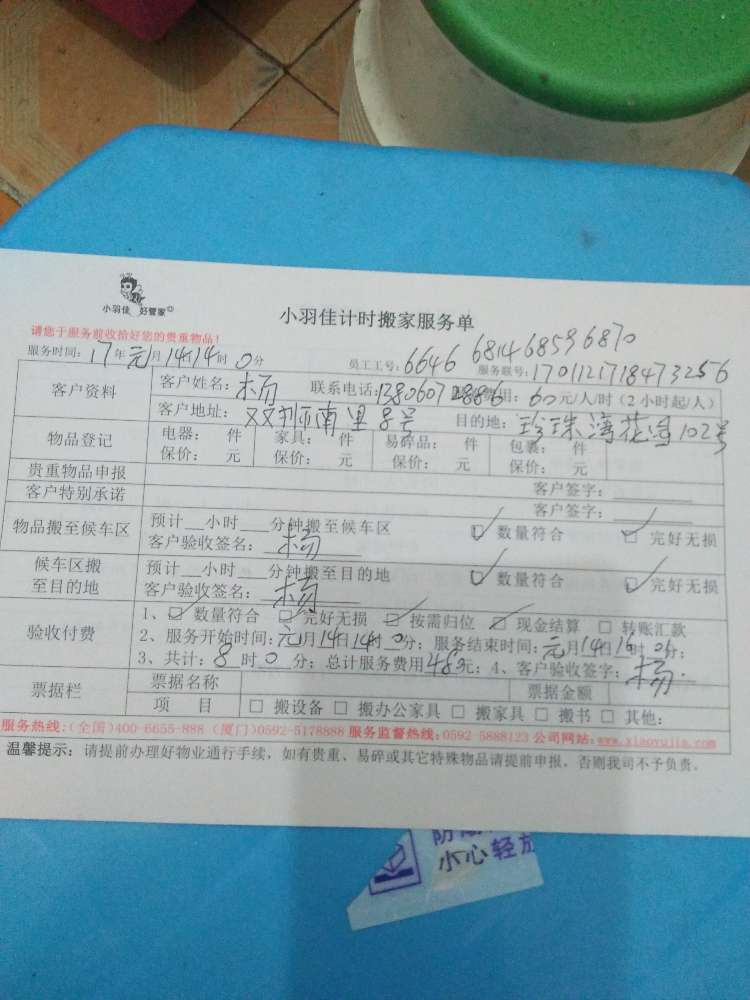 小羽佳 好管家
小羽佳计时搬家服务单
请您于服务前收拾好您的贵重物品!
服务时间: 17年元月14日14时0分 员工工号: 6646 6814 6859 6870 服务联号:
客户资料 客户姓名: 杨 联系电话: 费用: 60元/人/时(2小时起/人)
客户地址: 双狮南里8号 目的地: 珍珠海花湾102号
物品登记 电器: 件 家具: 件 易碎品: 件 包裹: 件
保价: 元 保价: 元 保价: 元 保价: 元
贵重物品申报 客户签字:
客户特别承诺 客户签字:
物品搬至候车区 预计__小时___分钟搬至候车区 ☑ 数量符合 ☑ 完好无损
客户验收签名: 杨
候车区搬至目的地 预计__小时___分钟搬至目的地 ☑ 数量符合 ☑ 完好无损
客户验收签名: 杨
验收付费 1、☑ 数量符合 ☑ 完好无损 ☑ 按需归位 ☑ 现金结算 □ 转账汇款
2、服务开始时间: 元月14日14时0分; 服务结束时间: 元月14日16时0分;
3、共计: 8时0分; 总计服务费用480元; 4、客户验收签字: 杨
票据栏 票据名称 票据金额
项 目 □ 搬设备 □ 搬办公家具 □ 搬家具 □ 搬书 □ 其他:
服务热线:(全国)400-6655-888 (厦门)0592-5178888 服务监督热线:0592-5888123 公司网站:www.xiaoyujia.com
温馨提示: 请提前办理好物业通行手续, 如有贵重、易碎或其它特殊物品请提前申报, 否则我司不予负责。
小心轻放